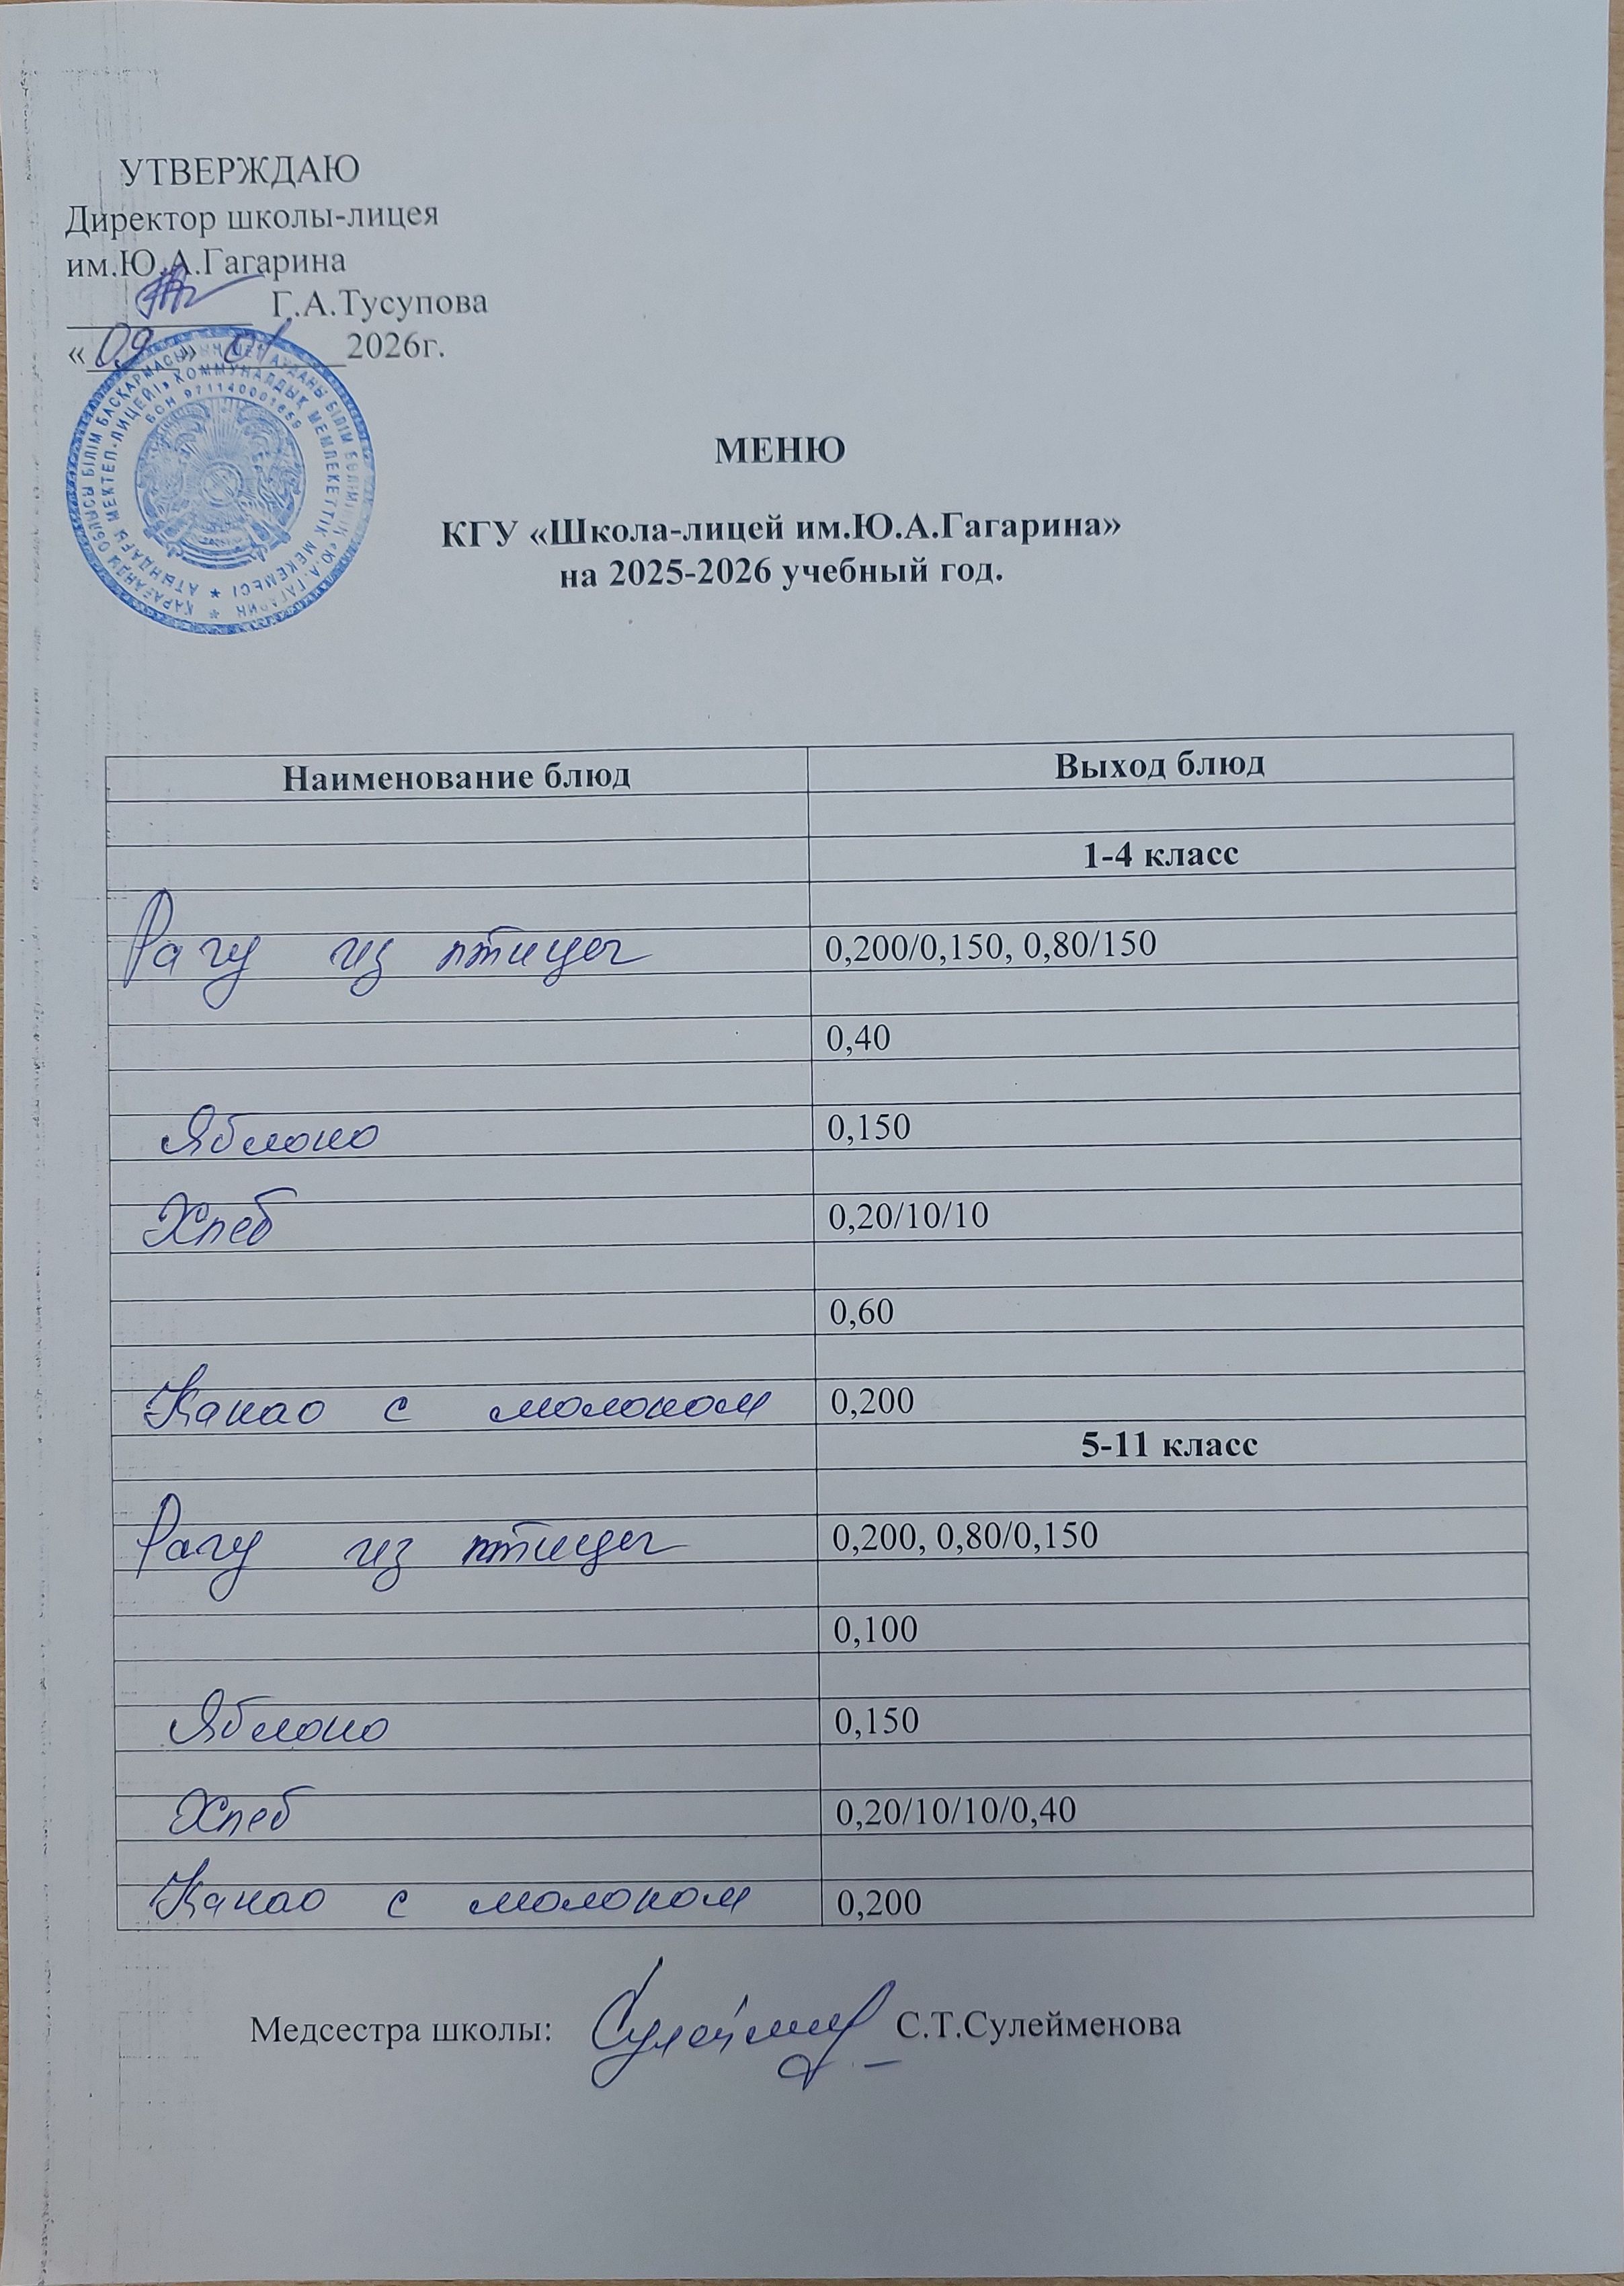 УТВЕРЖДАЮ
Директор школы-лицея
им.Ю.А.Гагарина
Г.А.Тусупова
«09» 01 2026г.
БСН 971140001659
МЕНЮ
КГУ «Школа-лицей им.Ю.А.Гагарина»
на 2025-2026 учебный год.
Наименование блюд Выход блюд
1-4 класс
Рагу из птицы 0,200/0,150, 0,80/150
0,40
Яблоко 0,150
Хлеб 0,20/10/10
0,60
Какао с молоком 0,200
5-11 класс
Рагу из птицы 0,200, 0,80/0,150
0,100
Яблоко 0,150
Хлеб 0,20/10/10/0,40
Какао с молоком 0,200
Медсестра школы: С.Т.Сулейменова